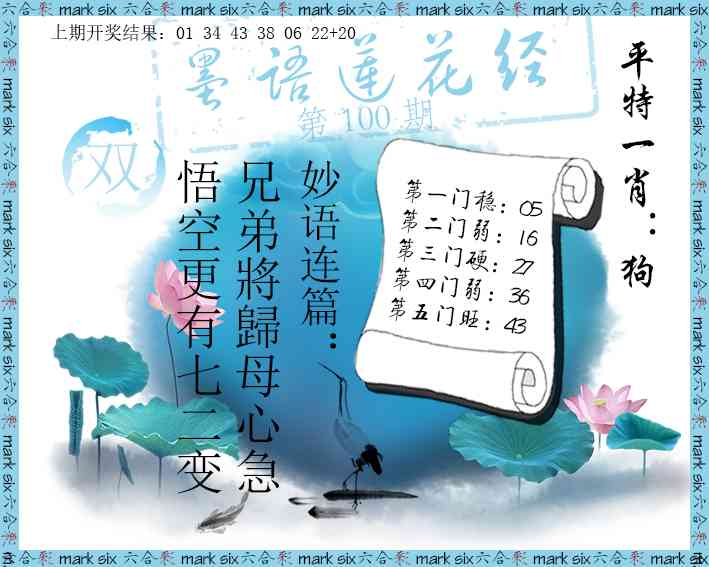 上期开奖结果：01 34 43 38 06 22+20
墨语莲花经
第 100 期
双
平特一肖：狗
第一门稳：05
第二门弱：16
第三门硬：27
第四门弱：36
第五门旺：43
妙语连篇：
兄弟將歸母心急
悟空更有七二变
六合彩 mark six 六合彩 mark six 六合彩 mark six 六合彩 mark six 六合彩 mark six